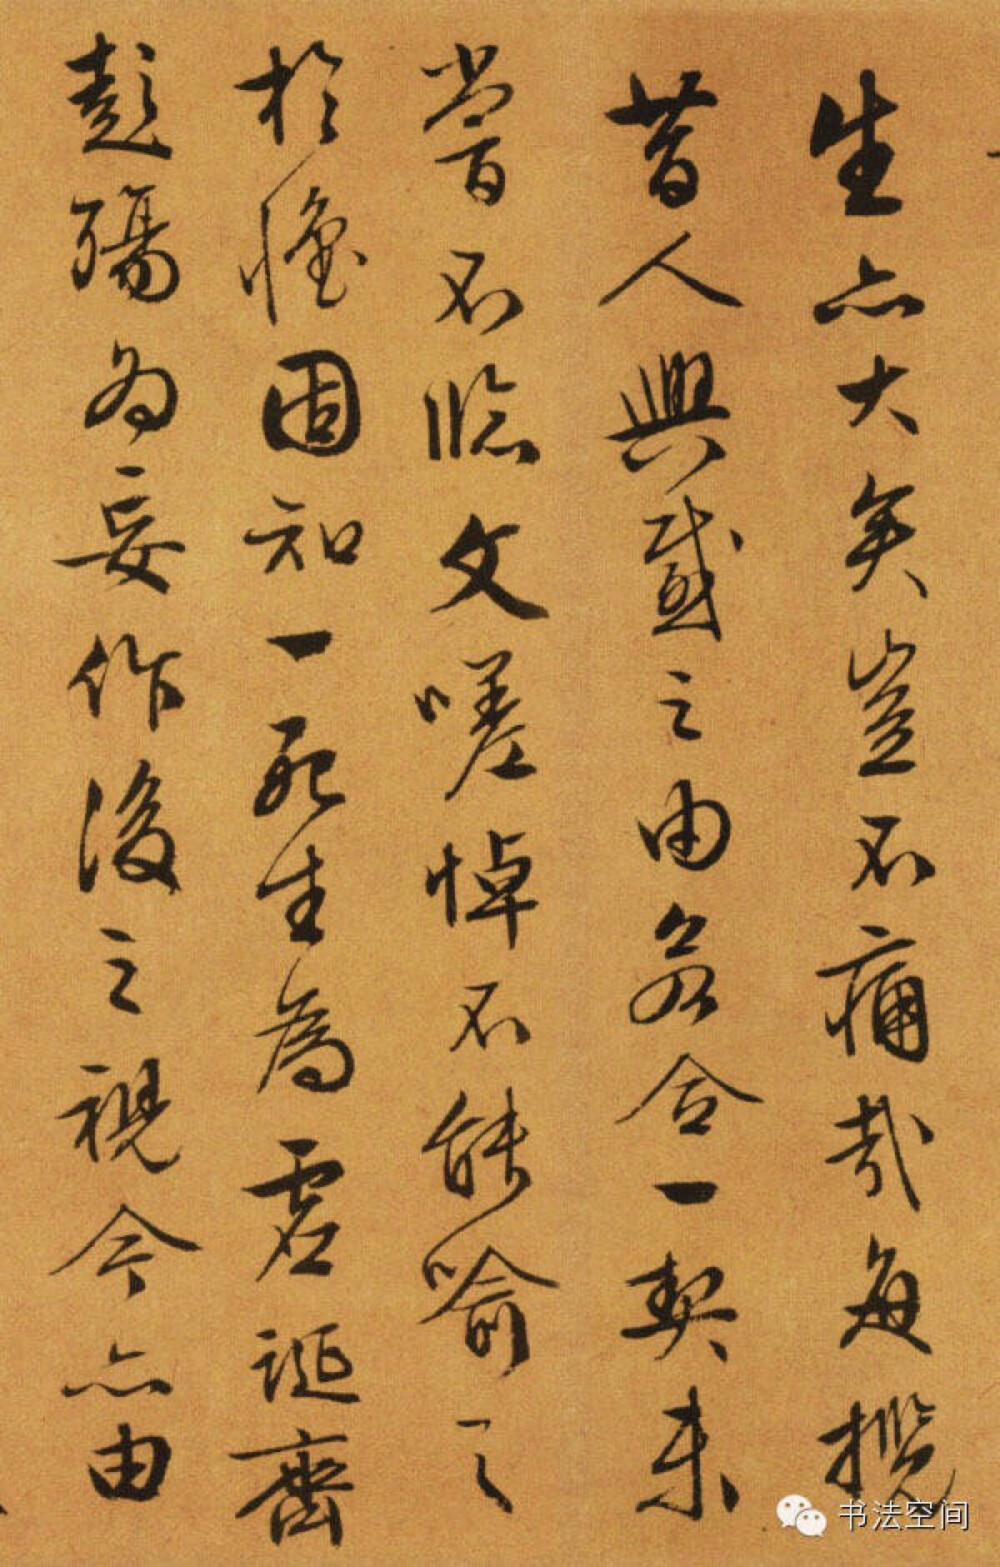 生亦大矣豈不痛哉每攬
昔人興感之由若合一契未
嘗不臨文嗟悼不能喻之
於懷固知一死生為虛誕齊
彭殤為妄作後之視今亦由
书法空间